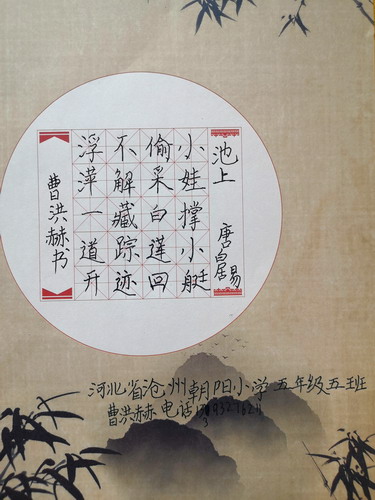 池上
唐白居易
小娃撑小艇
偷采白莲回
不解藏踪迹
浮萍一道开
曹洪赫书
河北省沧州朝阳小学五年级五班
曹洪赫电话